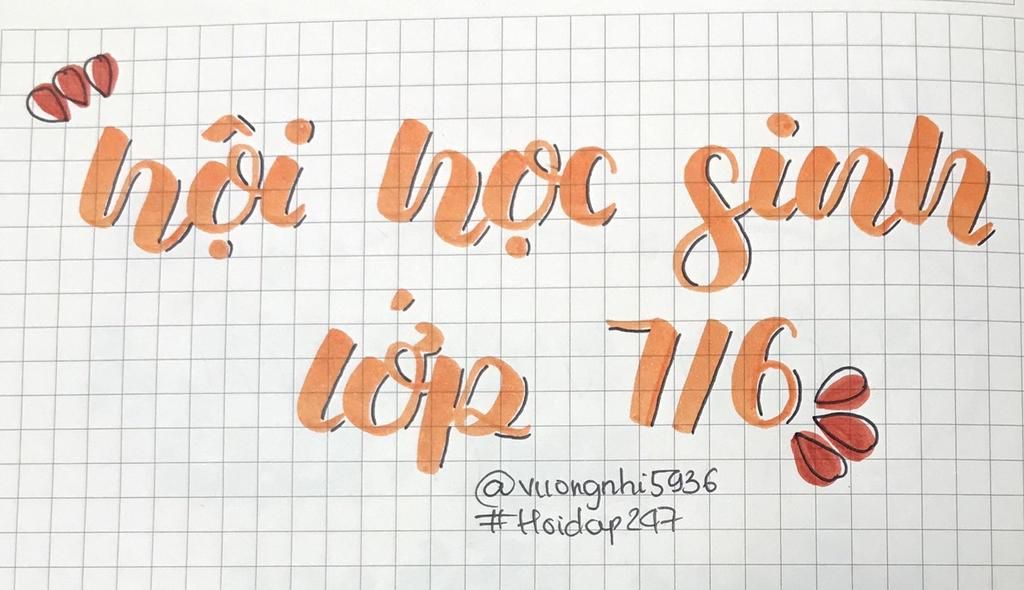 hội học sinh
lớp 7/6
@vuongnhi5936
#Hoidap247